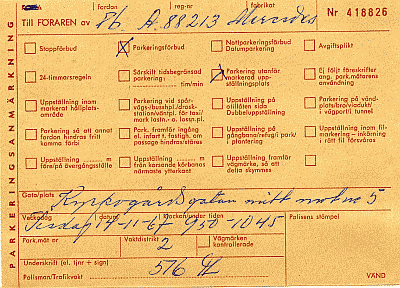 fordon reg-nr fabrikat
Till FÖRAREN av Pb. A. 88213 Mercedes Nr 418826
PARKERINGSANMÄRKNING
Stoppförbud
Parkeringsförbud
Nattparkeringsförbud
Datumparkering
Avgiftsplikt
24-timmarsregeln
Särskilt tidsbegränsad
parkering
tim/min
Parkering utanför
markerad upp-
ställningsplats
Ej följt föreskrifter
ang. park.mätarens
användning
Uppställning inom
markerat hållplats-
område
Parkering vid spår-
vägs-/busshpl/drosk-
station/väntpl. för taxi/
mark lastn.- o. lossn.pl.
Uppställning på
otillåten sida
Dubbeluppställning
Parkering på vänd-
plats/bro/viadukt/
i vägport/i tunnel
Parkering så att annat
fordon hindras fritt
komma förbi
Park. framför ingång
el. infart t. fastigh. om
passage hindras/störes
Uppställning på
gångbana/refug/i park/
i plantering
Uppställning inom fil-
markering - inkörning
i rätt fil försvåras
Uppställning m
före/på övergångsställe
Uppställning m
från korsande körbanas
närmaste ytterkant
Uppställning framför
vägmärke, så att
detta skymmes
Gata/plats Kyrkogårdsgatan mitt mot nr 5
Veckodag datum Klockan/under tiden Polisens stämpel
Tisdag 14-11-67 950-1045
Park.mät nr Vaktdistrikt Vägmärken
kontrollerade
2
Underskrift (el. tjnr + sign)
Polisman/Trafikvakt 576
VÄND